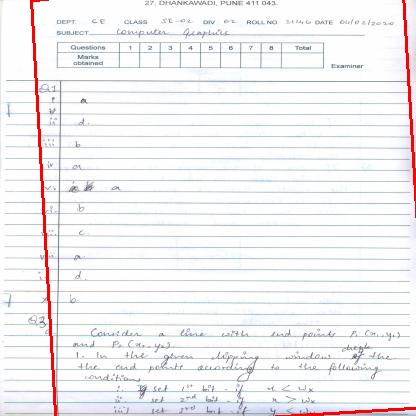 27, DHANKAWADI, PUNE 411 043.
DEPT. CE CLASS SE-02 DIV 02 ROLL NO. 21146 DATE 04/02/2020
SUBJECT Computer Graphics
Questions 1 2 3 4 5 6 7 8 Total
Marks obtained
Examiner
Q1
i. a
ii d.
iii b
iv a
v. a
vi. b
vii. c.
viii a.
d.
x b.
Q3
Consider a line with end points P1 (x1, y1)
and P2 (x2, y2)
1. In the given clipping window the
the end points according to the following
conditions
i. set 1st bit - if x < Wx
ii. set 2nd bit - if x > Wx
iii) set 3rd bit - if y < Wy